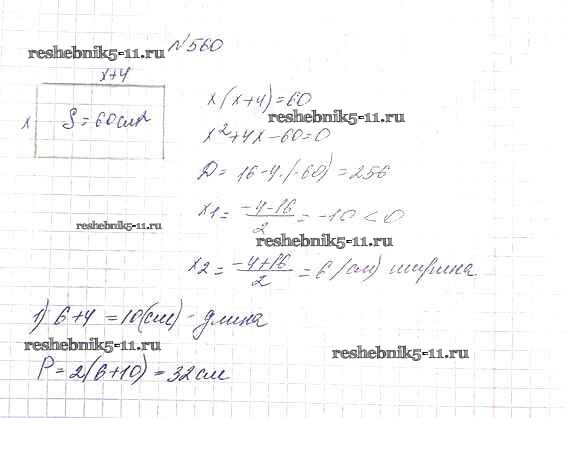 №560
reshebnik5-11.ru
x+4
x
S = 60см²
x(x+4)=60
reshebnik5-11.ru
x²+4x-60=0
D = 16-4·(-60) = 256
x1 = -4-16/2 = -10 < 0
reshebnik5-11.ru
reshebnik5-11.ru
x2 = -4+16/2 = 6 (см) ширина
1) 6+4 = 10(см) - длина
reshebnik5-11.ru
reshebnik5-11.ru
P = 2(6+10) = 32см